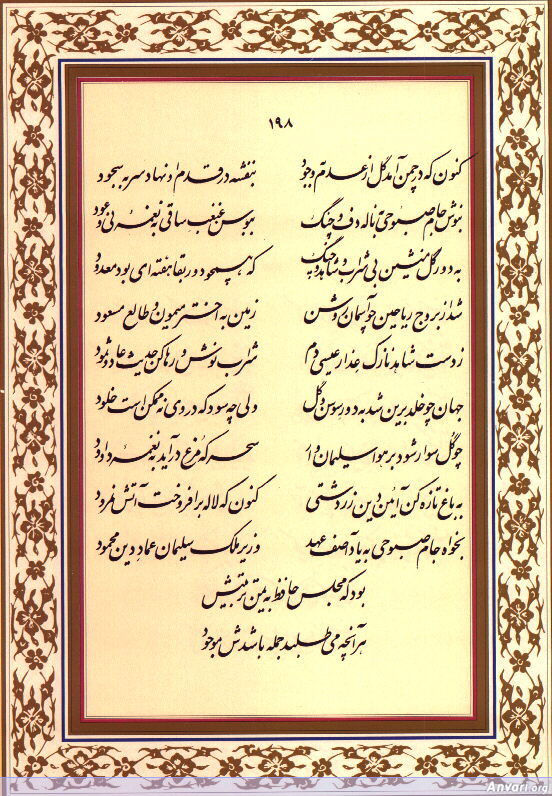 ۱۹۸
کنون که در چمن آمد گل از عدم بوجود بنفشه در قدم او نهاد سر بسجود
بنوش جام صبوحی بناله دف و چنگ ببوس غبغب ساقی به نغمه نی و عود
به دور گل منشین بی شراب و شاهد و چنگ که همچو دور بقا هفته ای بود معدود
شد از بروج ریاحین چو آسمان روشن زمین به اختر میمون و طالع مسعود
ز دست شاهد نازک عذار عیسی دم شراب نوش و رها کن حدیث عاد و ثمود
جهان چو خلد برین شد به دور سوسن و گل ولی چه سود که در وی نه ممکن است خلود
چو گل سوار شود بر هوا سلیمان وار سحر که مرغ درآید بنغمه داود
به باغ تازه کن آیین دین زردشتی کنون که لاله برافروخت آتش نمرود
بخواه جام صبوحی به یاد آصف عهد وزیر ملک سلیمان عماد دین محمود
بود که مجلس حافظ به یمن تربیتش
هر آنچه می طلبد جمله باشدش موجود
Anvari.org